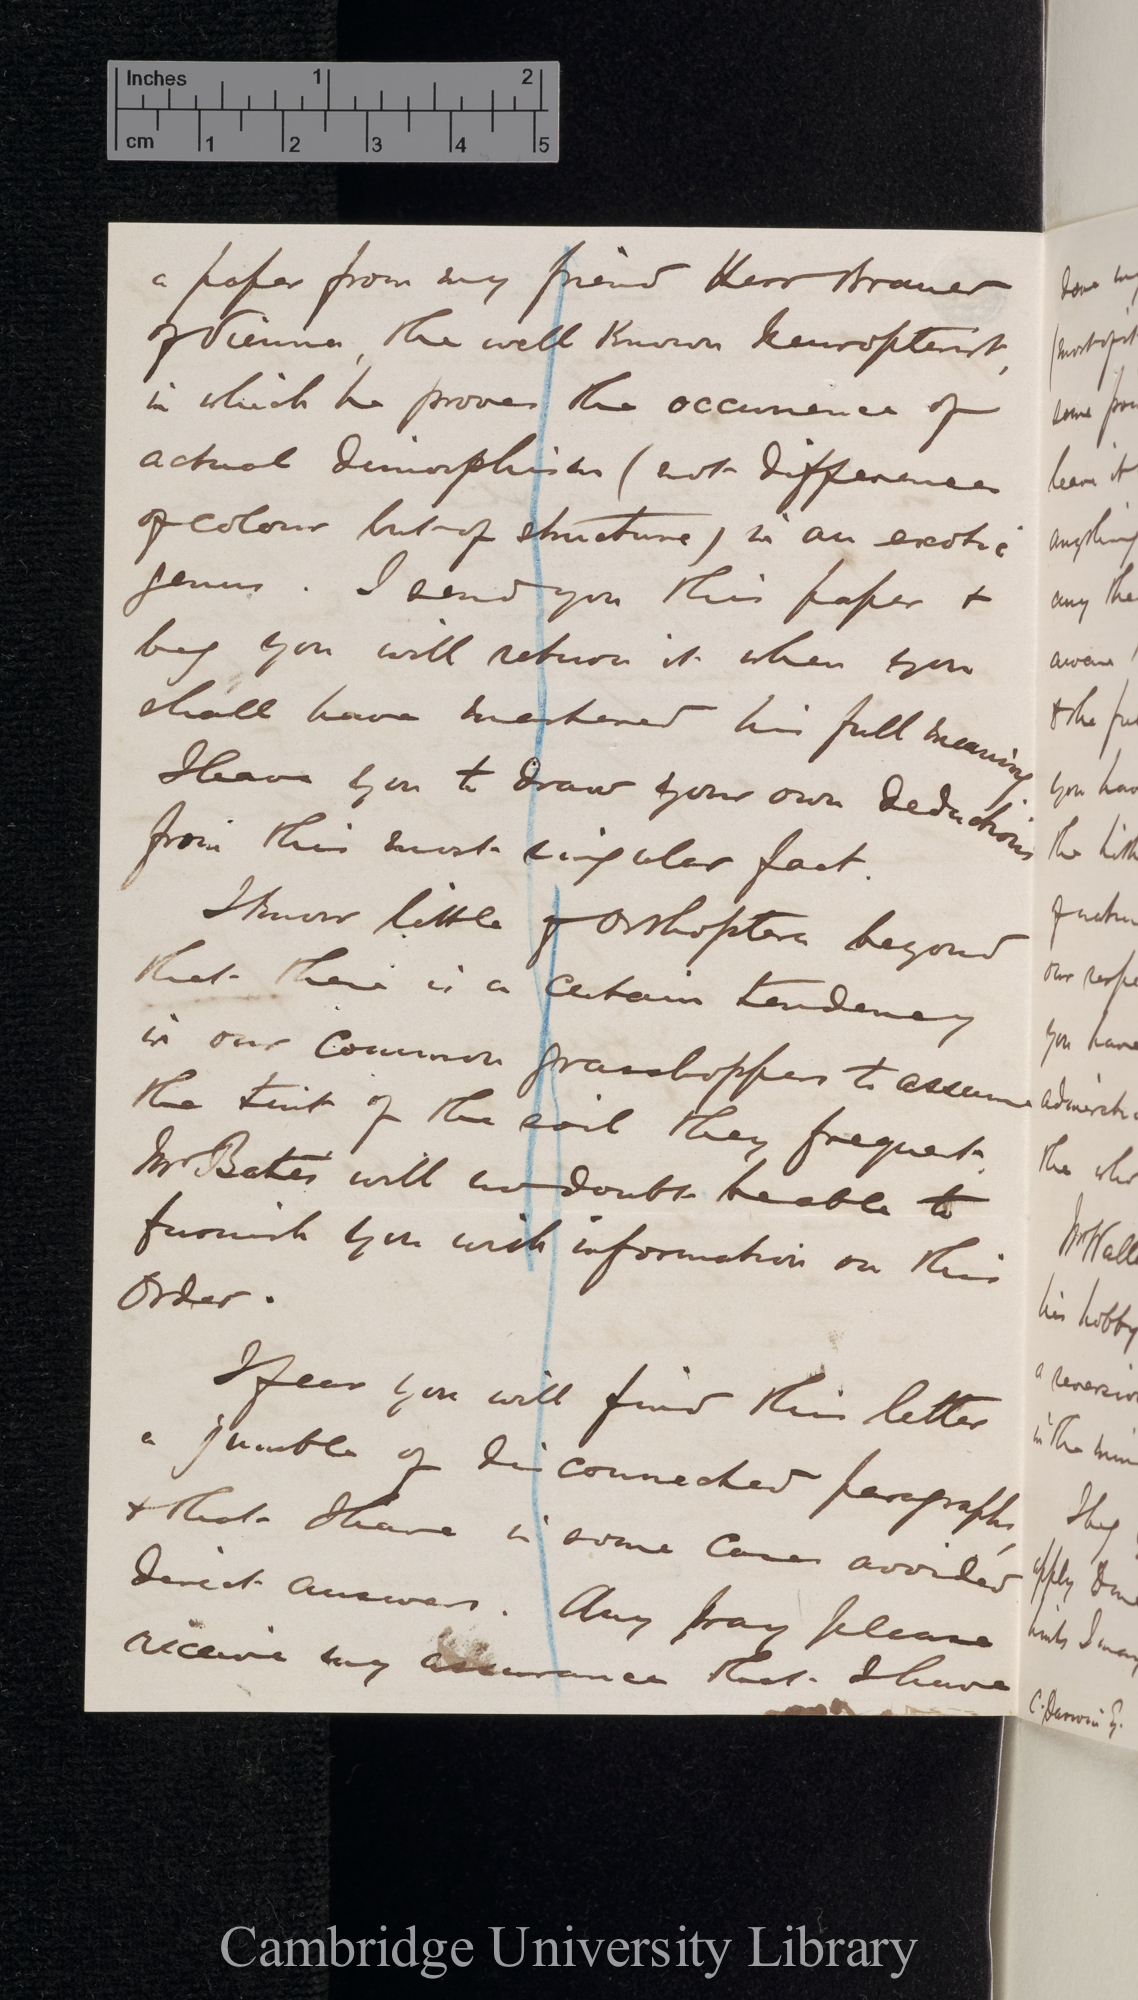 Inches 1 2
cm 1 2 3 4 5
a paper from my friend Herr Brauer
of Vienna, the well known Neuropterist,
in which he proves the occurrence of
actual dimorphism (not difference
of colour but of structure) in an exotic
genus. I send you this paper &
beg you will return it when you
shall have mastered his full meaning
I leave you to draw your own deductions
from this most singular fact.
I know little of Orthoptera beyond
that there is a certain tendency
in our common grasshoppers to assume
the tint of the soil they frequent.
Mr Bates will no doubt be able to
furnish you with information on this
Order.
I fear you will find this letter
a jumble of disconnected paragraphs,
& that I have in some cases avoided
direct answers. Any pray please
receive my assurance that I have
some
leave it
anything
any the
aware
& the
you have
the
our
you have
the
Mr Wall
his hobby
a reversion
in the
I beg
apply
hints I may
C. Darwin Esq.
Cambridge University Library